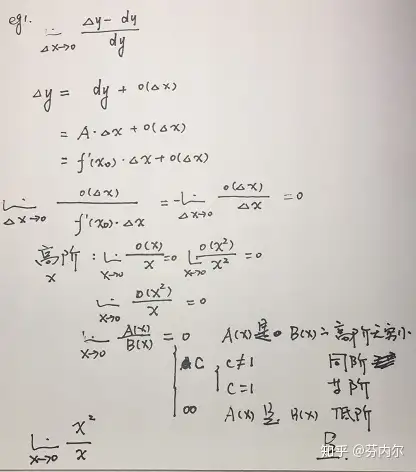 eg1. lim Δx→0 Δy-dy/dy
Δy = dy + o(Δx)
= A·Δx + o(Δx)
= f'(x₀)·Δx + o(Δx)
lim Δx→0 o(Δx)/f'(x₀)·Δx = -lim Δx→0 o(Δx)/Δx = 0
高阶: lim x→0 o(x)/x = 0 lim x→0 o(x²)/x² = 0
x
lim x→0 o(x²)/x = 0
lim x→0 A(x)/B(x) = 0 A(x)是 B(x)高阶无穷小
C { C≠1 同阶
C=1
∞ A(x)是 B(x) 低阶
lim x→0 x²/x
B
知乎 @芬内尔